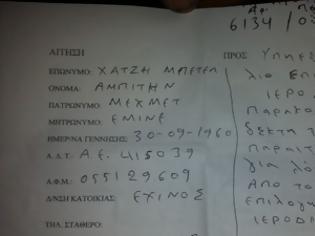 Αρ.
6134 /
ΑΙΤΗΣΗ
ΕΠΩΝΥΜΟ: ΧΑΤΖΗ ΜΠΕΤΕΛ
ΟΝΟΜΑ: ΑΜΠΙΤΗΝ
ΠΑΤΡΩΝΥΜΟ: ΜΕΧΜΕΤ
ΜΗΤΡΩΝΥΜΟ: ΕΜΙΝΕ
ΗΜΕΡ/ΝΑ ΓΕΝΝΗΣΗΣ: 30-09-1960
Α.Δ.Τ: Α.Ε. 415039
Α.Φ.Μ.: 055129609
Δ/ΝΣΗ ΚΑΤΟΙΚΙΑΣ: ΕΧΙΝΟΣ
ΤΗΛ. ΣΤΑΘΕΡΟ:
ΠΡΟΣ Υπηρε
λιο Επι
ΙΕΡΟ
Παρακα
δεκτη τ
παραιτ
για λό
Από το
επιλογη
ΙΕΡΟΔ